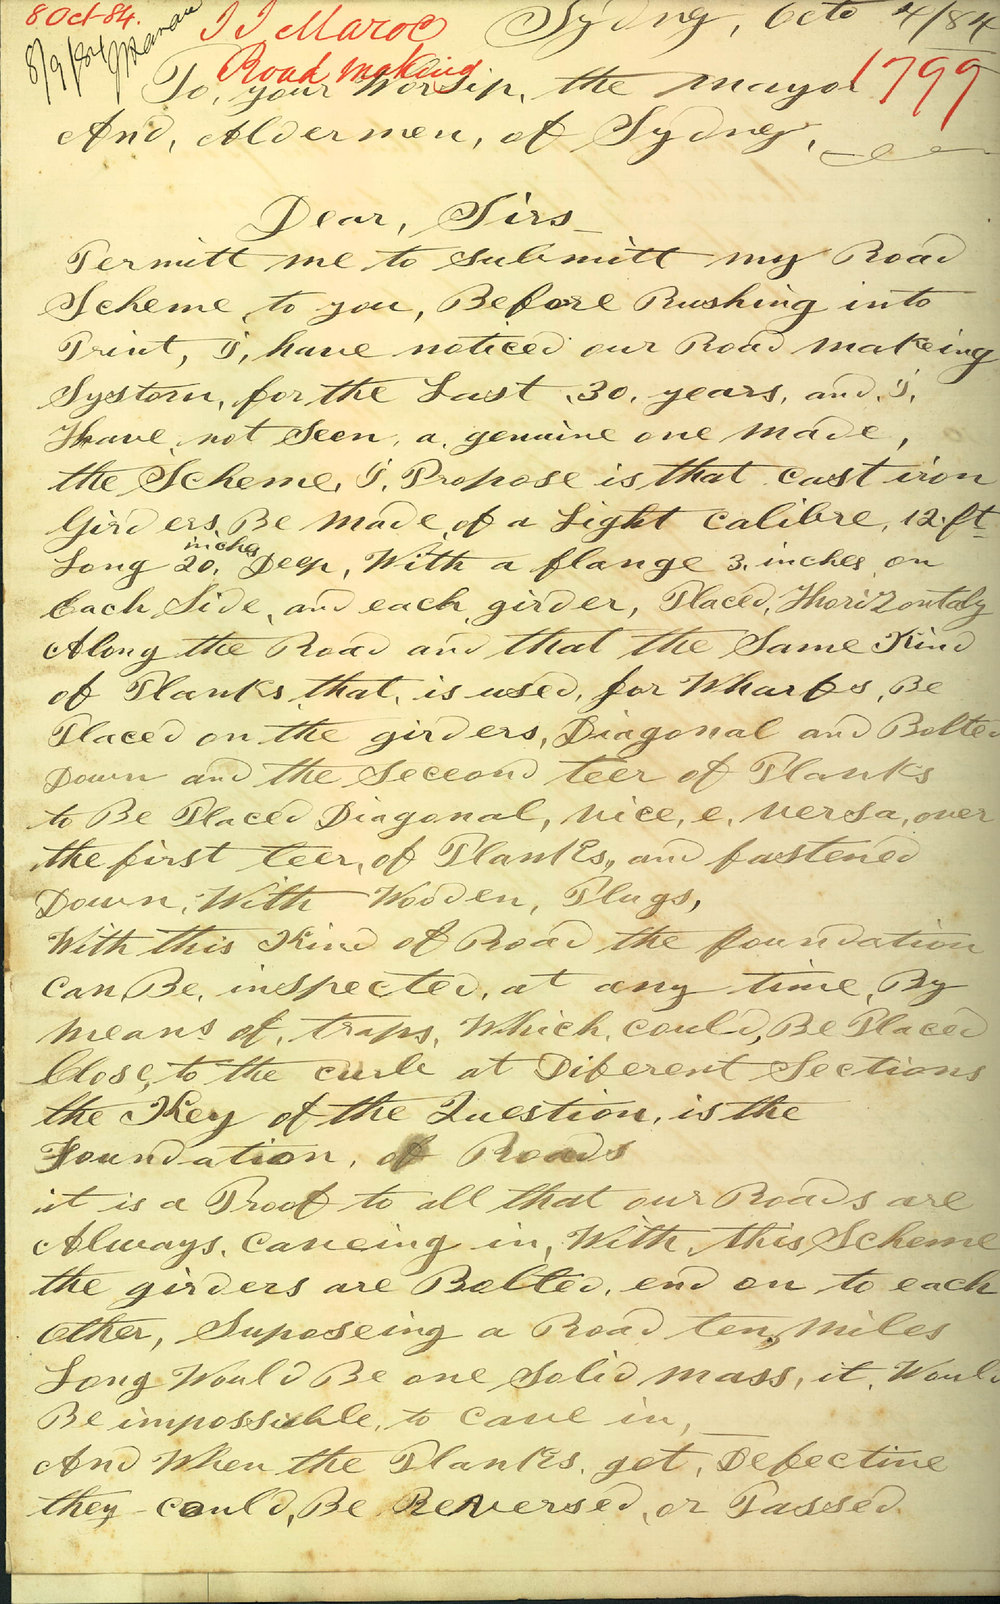 8 Oct 84.
J J Maroc
Road making
1799
Sydney, Octo 4/84
To, your Worship, the mayor
And, Aldermen, of Sydney,
Dear, Sirs
Permitt me to submitt my Road
Scheme to you, Before Rushing into
Print, I, have noticed our Road makeing
System, for the Last 30, years, and, I,
Have not Seen, a, genuine one made,
the Scheme, I, Propose is that cast iron
Girders Be made of a Light Calibre, 12 ft
Long 20, inches Deep, With a flange 3 inches on
Each Side, and each girder, Placed, Horizontaly
Along the Road and that the Same Kind
of Planks that, is used, for Wharfs, Be
Placed on the girders, Diagonal and Bolted
Down and the Seccond teer of Planks
to Be Placed Diagonal, vice, e, versa, over
the first teer, of Planks, and fastened
Down, With Wooden, Plugs,
With this Kind of Road the foundation
can Be, inspected, at any time, By
means of, traps, Which, could, Be Placed
Close, to the curb at Diferent Sections
the Key of the Question, is the
Foundation, of Roads
it is a Proof to all that our Roads are
Always, caveing in, With, this Scheme
the girders are Bolted, end on to each
other, Suposeing a Road ten, miles
Long Would Be one Solid mass, it, Would
Be impossible, to cave in,
And When the Planks, get, Defective
they could, Be Reversed, or Passed